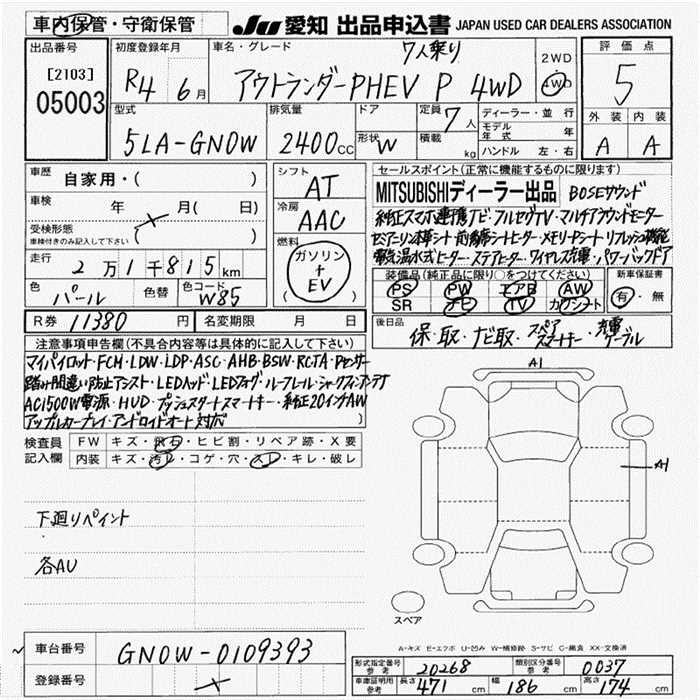 車内保管・守衛保管
JU 愛知 出品申込書 JAPAN USED CAR DEALERS ASSOCIATION
出品番号
[2103]
05003
初度登録年月
R4 6月
車名・グレード
7人乗り
アウトランダーPHEV P 4WD
2WD
4WD
評価点
5
外装 内装
A A
型式
5LA-GN0W
排気量
2400cc
ドア
形状 W
定員 7人
積載 kg
ディーラー・並行
モデル年式 年
ハンドル 左・右
車歴 自家用・( )
車検 年 月(日)
受検形態
車検付きのみ記入して下さい ( )
走行 2万1千815km
色 パール 色替 色コード W85
シフト
AT
冷房
AAC
燃料
ガソリン
+
EV
( )
R券 11380 円 名変期限 月 日
セールスポイント(正常に機能するものに限ります)
MITSUBISHIディーラー出品 BOSEサウンド
純正スマホ連携ナビ・フルセグTV・マルチアラウンドモニター
セミアニリン本革シート・前後席シートヒーター・メモリーPシート・リフレッシュ機能
電気温水式ヒーター・ステアヒーター・ワイヤレス充電・パワーバックドア
装備品(純正品に限り○をつけてください)
PS PW エアB AW
SR ナビ TV カワシート
新車保証書
有・無
後日品
保・取・ナビ取・スペアスマートキー・充電ケーブル
注意事項申告欄(不具合内容等は具体的に記入して下さい)
マイパイロット・FCM・LDW・LDP・ASC・AHB・BSW・RCTA・Pセンサー
踏み間違い防止アシスト・LEDヘッド・LEDフォグ・ルーフレール・シャークフィンアンテナ
AC1500W電源・HUD・プッシュスタートスマートキー・純正20インチAW
アップルカープレイ・アンドロイドオート対応
検査員記入欄
FW キズ・飛石・ヒビ割・リペア跡・X要
内装 キズ・汚れ・コゲ・穴・スレ・キレ・破レ
下廻りペイント
各AU
A1
A1
スペア
A-キズ E-エクボ U-凹み W-補修跡 S-サビ C-腐食 XX-交換済
車台番号 GN0W-0109393
登録番号
形式指定番号参考 20268 類別区分番号参考 0037
車庫証明用参考 長さ 471cm 幅 186cm 高さ 174cm